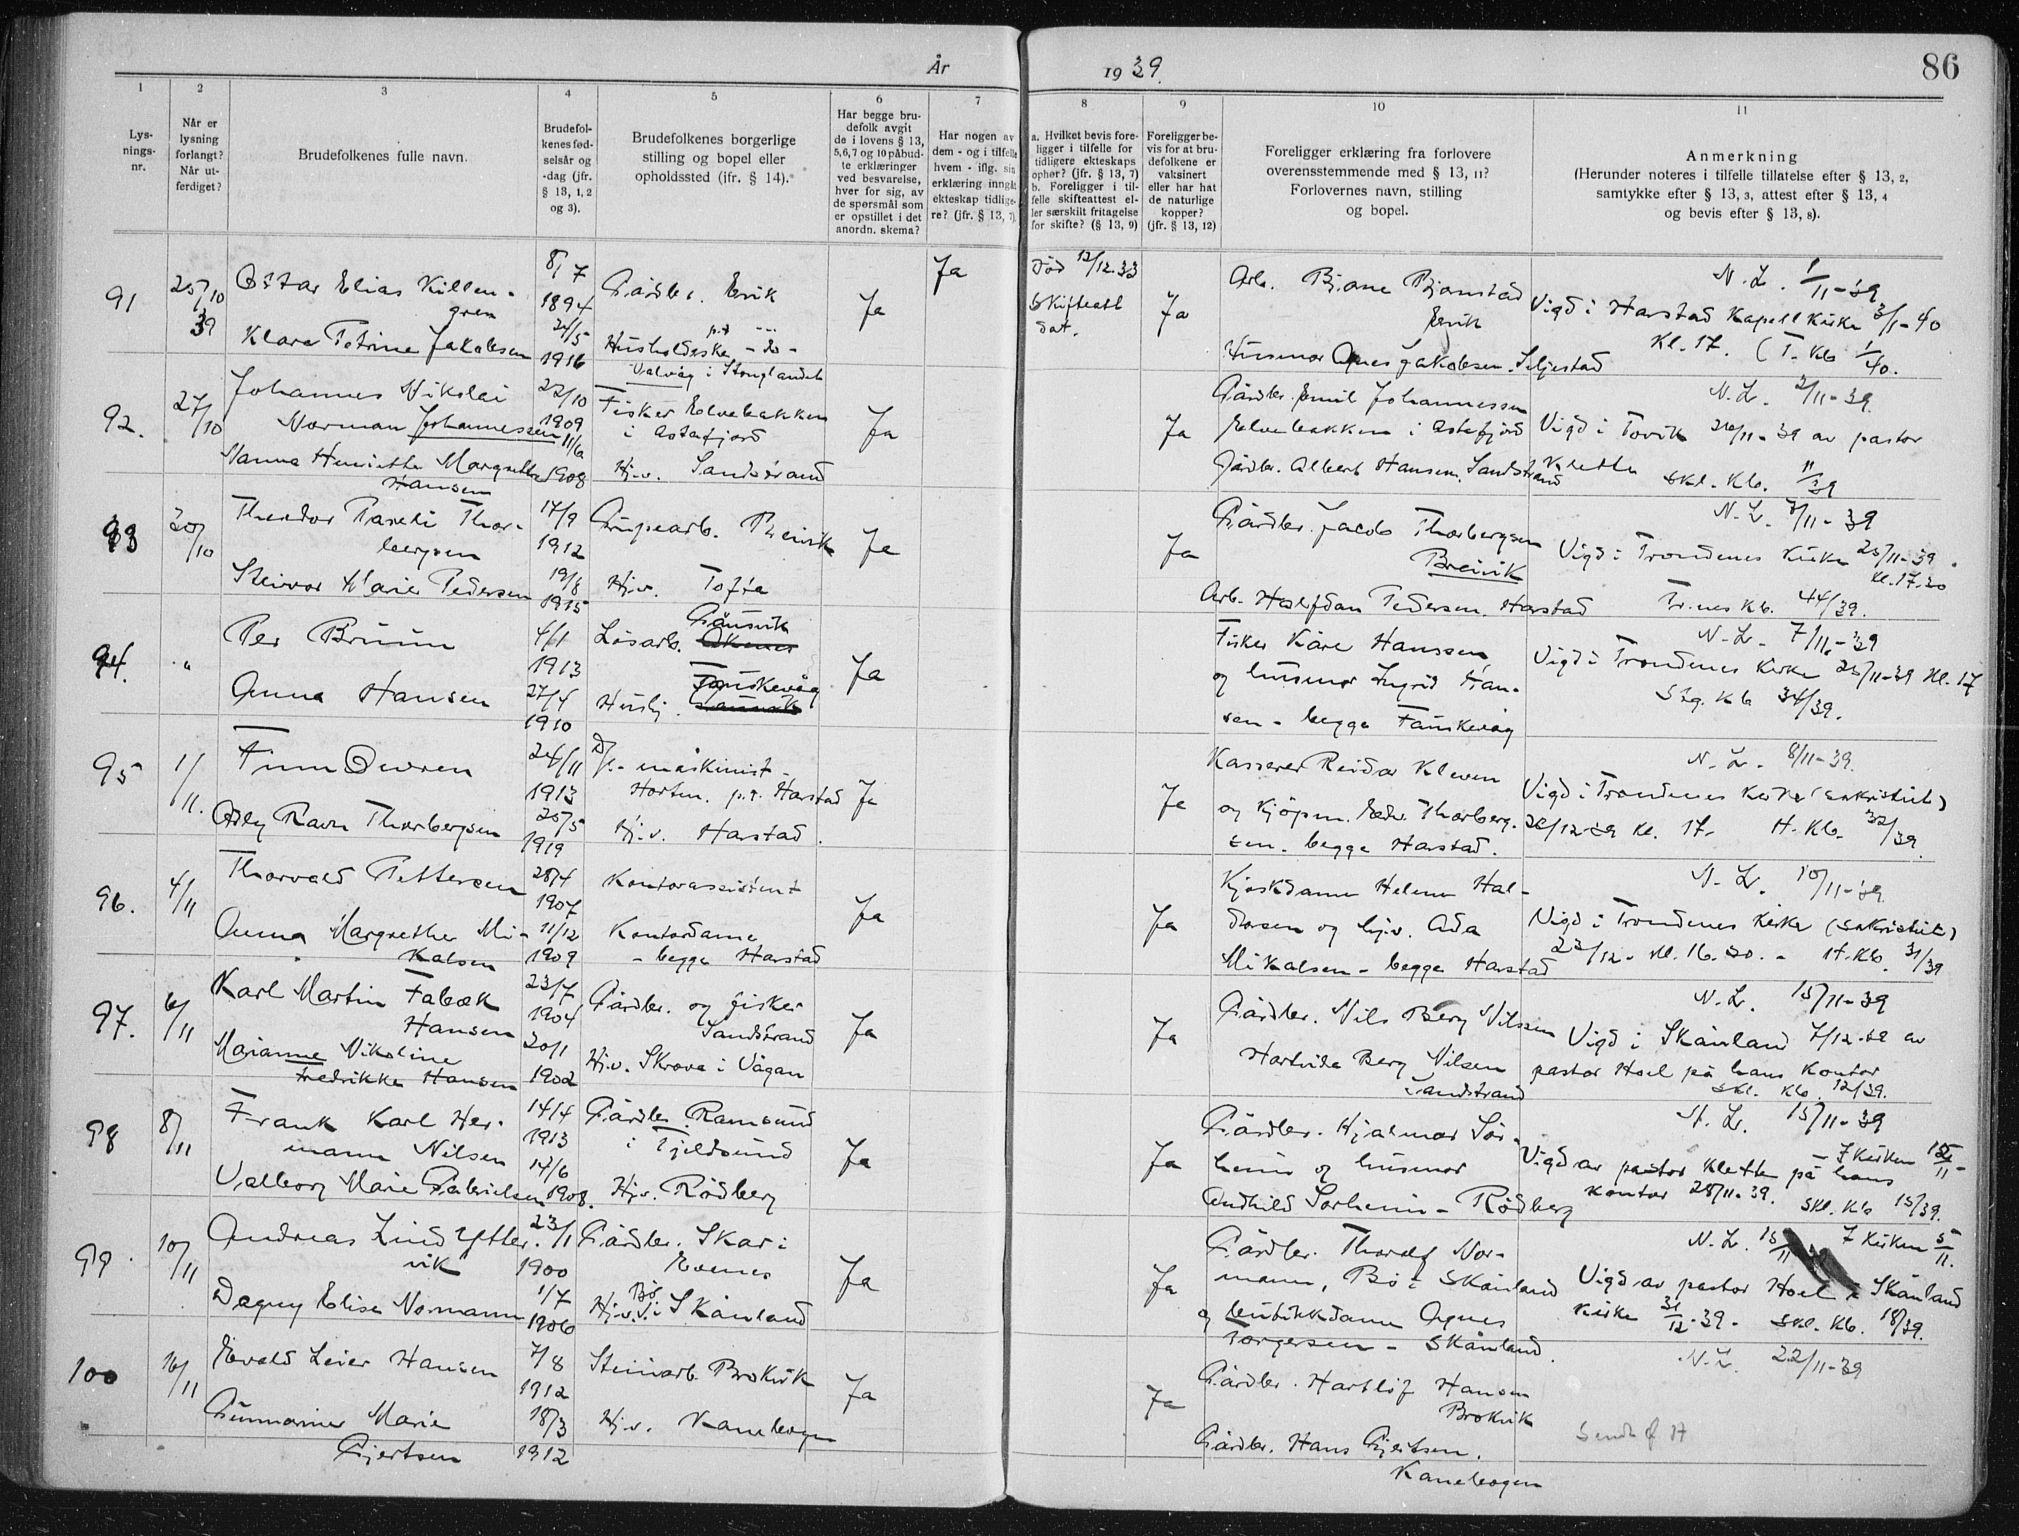 År 1939.
86
1 2 3 4 5 6 7 8 9 10 11
Lys-
nings-
nr.
Når er
lysning
forlangt?
Når ut-
ferdiget?
Brudefolkenes fulle navn.
Brudefol-
kenes fød-
selsår og
-dag (jfr.
§ 13, 1, 2
og 3).
Brudefolkenes borgerlige
stilling og bopel eller
opholdssted (ifr. § 14).
Har begge bru-
defolk avgit
de i lovens § 13,
5,6,7 og 10 påbud-
te erklæringer
ved besvarelse,
hver for sig, av
de spørsmål som
er opstillet i det
anordn. skema?
Har nogen av
dem - og i tilfelle
hvem - iflg. sin
erklæring inngåt
ekteskap tidlige-
re? (jfr. § 13, 7)
a. Hvilket bevis fore-
ligger i tilfelle for
tidligere ekteskaps
ophør? (jfr. § 13, 7)
b. Foreligger i til-
felle skifteattest el-
ler særskilt fritagelse
for skifte? (§ 13, 9)
Foreligger be-
vis for at bru-
defolkene er
vaksinert
eller har hat
de naturlige
kopper?
(jfr. § 13, 12)
Foreligger erklæring fra forlovere
overensstemmende med § 13, 11?
Forlovernes navn, stilling
og bopel.
Anmerkning
(Herunder noteres i tilfelle tillatelse efter § 13, 2,
samtykke efter § 13, 3, attest efter § 13, 4
og bevis efter § 13, 8).
91 25/10 39
8/7 1894
Gårdbr. Ervik
Ja Ja
Død 12/12.33
Skifteatt
dat.
Ja
Arb. Bjarne Bjørnstad
Ervik
N. L. 1/11-39
Vigd i Harstad Kapell Kirke 3/1-40
Kl. 17. (T. Kb 1/40.
Klara Petrine Jakobsen
24/5 1916
Husholderske - do -
Husmor Agnes Jakobsen, Seljestad
92. 27/10
Johannes Nikolai
Norman Johannessen
22/10 1909
Valvåg i Stonglandet
Fisker Elvebakken
i Astafjord
Ja Ja
Gårdbr. Emil Johannessen
Elvebakken i Astafjord
N. L. 2/11-39.
Vigd i Tovik 26/11-39 av pastor
Kletten
Skl. Kb. 11/39
Nanna Henriette Margrethe
Hansen
11/6 1908
Hj.v. Sandstrand
Gårdbr. Albert Hansen, Sandstrand
93 30/10
Theodor Pareli Thor-
bergsen
17/9 1912
Grupearb. Breivik
Ja Ja
Gårdbr. Jacob Thorbergsen
Breivik
N. L. 7/11-39
Vigd i Trondenes Kirke 25/11-39.
Kl. 17.30
Tr.nes Kb. 44/39.
Steinvor Marie Pedersen
19/8 1915
Hj.v. Tofta
Arb. Halfdan Pedersen, Harstad
94. "
Per Bruun
4/1 1913
Løsarb. Gausvik
Ja
Fisker Kåre Hanssen
og husmor Ingrid Han-
sen - begge Fauskevåg
N. L. 7/11-39
Vigd i Trondenes Kirke 25/11-39 Kl. 17
Skg. Kb 34/39.
Anna Hansen
27/4 1910
Hushj. Fauskevåg
95 1/11.
Finn Devren
24/11 1913
maskinist -
Horten. p.t. Harstad
Ja Ja
Kasserer Reidar Kleven
og kjøpm. Edv. Thorberg-
sen - begge Harstad.
N. L. 8/11-39.
Vigd i Trondenes Kirke (sakristiet)
26/12-39 Kl. 17- H. Kb. 32/39.
Ravn Thorbergsen
25/5 1919
Hj.v. Harstad.
96. 4/11
Thorvald Pettersen
28/4 1907
Kontorassistent
Ja Ja
Kjoskdame Helene Hal-
dorsen og hj.v. Ada
Mikalsen - begge Harstad
N. L. 10/11-39.
Vigd i Trondenes Kirke (sakristiet)
23/12- Kl. 16.30. - H. Kb. 31/39
Anna Margrethe Mi-
kalsen
11/12 1909
Kontordame
- begge Harstad
97. 6/11
Karl Martin Falvæk
Hansen
23/7 1904
Gårdbr. og fisker
Sandstrand
Ja Ja
Gårdbr. Nils Berg Nilssen
Hartvika Berg Nilsen
Sandstrand
N. L. 15/11-39
Vigd i Skånland 7/12-39 av
pastor Hoel på hans kontor
Skl. Kb. 12/39.
Marianne Nikoline
Fredrikke Hansen
20/1 1902
Hj.v. Skrova i Vågan
98 8/11
Frank Karl Her-
mann Nilsen
14/4 1913
Gårdbr. Ramsund
i Tjeldsund
Ja Ja
Gårdbr. Hjalmar Sør-
heim og husmor
Andhild Sørheim - Rødberg
N. L. 15/11-39
Vigd av pastor Kletten på hans
kontor 28/11-39. Skl. Kb 15/39.
Valborg Marie Gabrielsen
14/6 1908.
Hj.v. Rødberg
99. 10/11
Andreas Lind Ytter-
vik
23/1 1900
Gårdbr. Skar i
Evenes
Ja Ja
Gårdbr. Thoralf Nor-
mann, Bø i Skånland
og butikkdame Agnes
Torgersen - Skånland.
N. L. 15/11
Vigd av pastor Hoel i Skånland
Kirke 31/12-39 - Skl. Kb. 18/39.
Dagny Elise Normann
1/7 1906
Hj.v. Bø i Skånland
100 16/11
Evald Leier Hansen
7/8 1912
Steinarb. Brokvik
Ja Ja
Gårdbr. Hartløf Hansen
Brokvik
N. L. 22/11-39
Gunnarine Marie
Gjertsen
18/3 1912
Hj.v. Kanebogen
Gårdbr. Hans Gjertsen.
Kanebogen